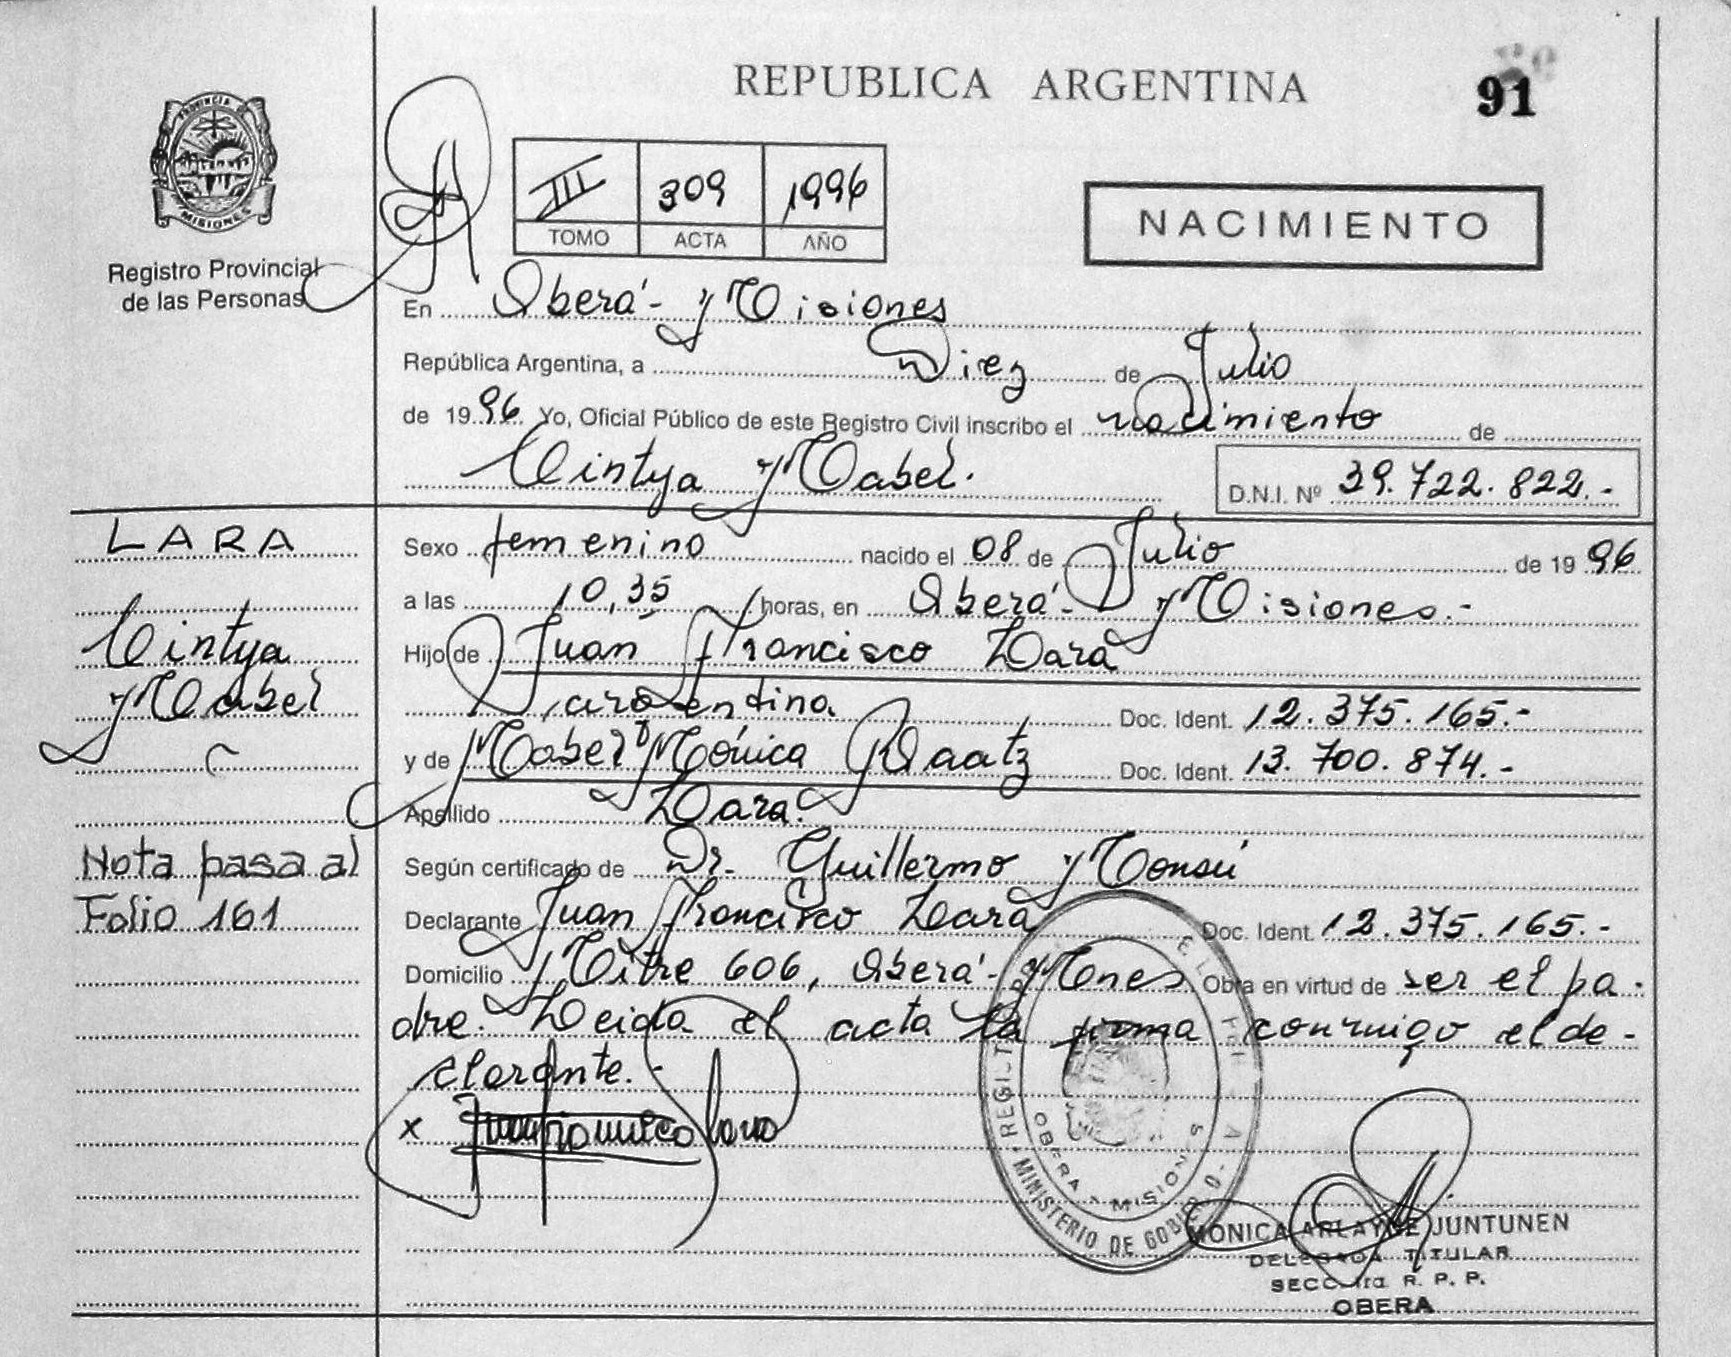 REPUBLICA ARGENTINA
91
PROVINCIA DE
MISIONES
Registro Provincial
de las Personas
III 309 1996
TOMO ACTA AÑO
NACIMIENTO
En Oberá - Misiones
República Argentina, a Diez de Julio
de 19 96 Yo, Oficial Público de este Registro Civil inscribo el nacimiento de
Cintya Mabel.
D.N.I. Nº 39.722.822.-
LARA
Cintya
Mabel
Nota pasa al
Folio 161
Sexo femenino nacido el 08 de Julio de 19 96
a las 10,35 horas, en Oberá - Misiones.-
Hijo de Juan Francisco Lara
argentina Doc. Ident. 12.375.165.-
y de Mabel Mónica Raatz Doc. Ident. 13.700.874.-
Apellido Lara.
Según certificado de Dr. Guillermo Monsú
Declarante Juan Francisco Lara Doc. Ident. 12.375.165.-
Domicilio Mitre 606, Oberá - Mnes. Obra en virtud de ser el pa-
dre. Leida el acta la firma conmigo el de-
clarante.-
x
MINISTERIO DE GOBIERNO
OBERA - MISIONES
MONICA ARLAYNE JUNTUNEN
DELEGADA TITULAR
SECC. 1ra. R. P. P.
OBERA